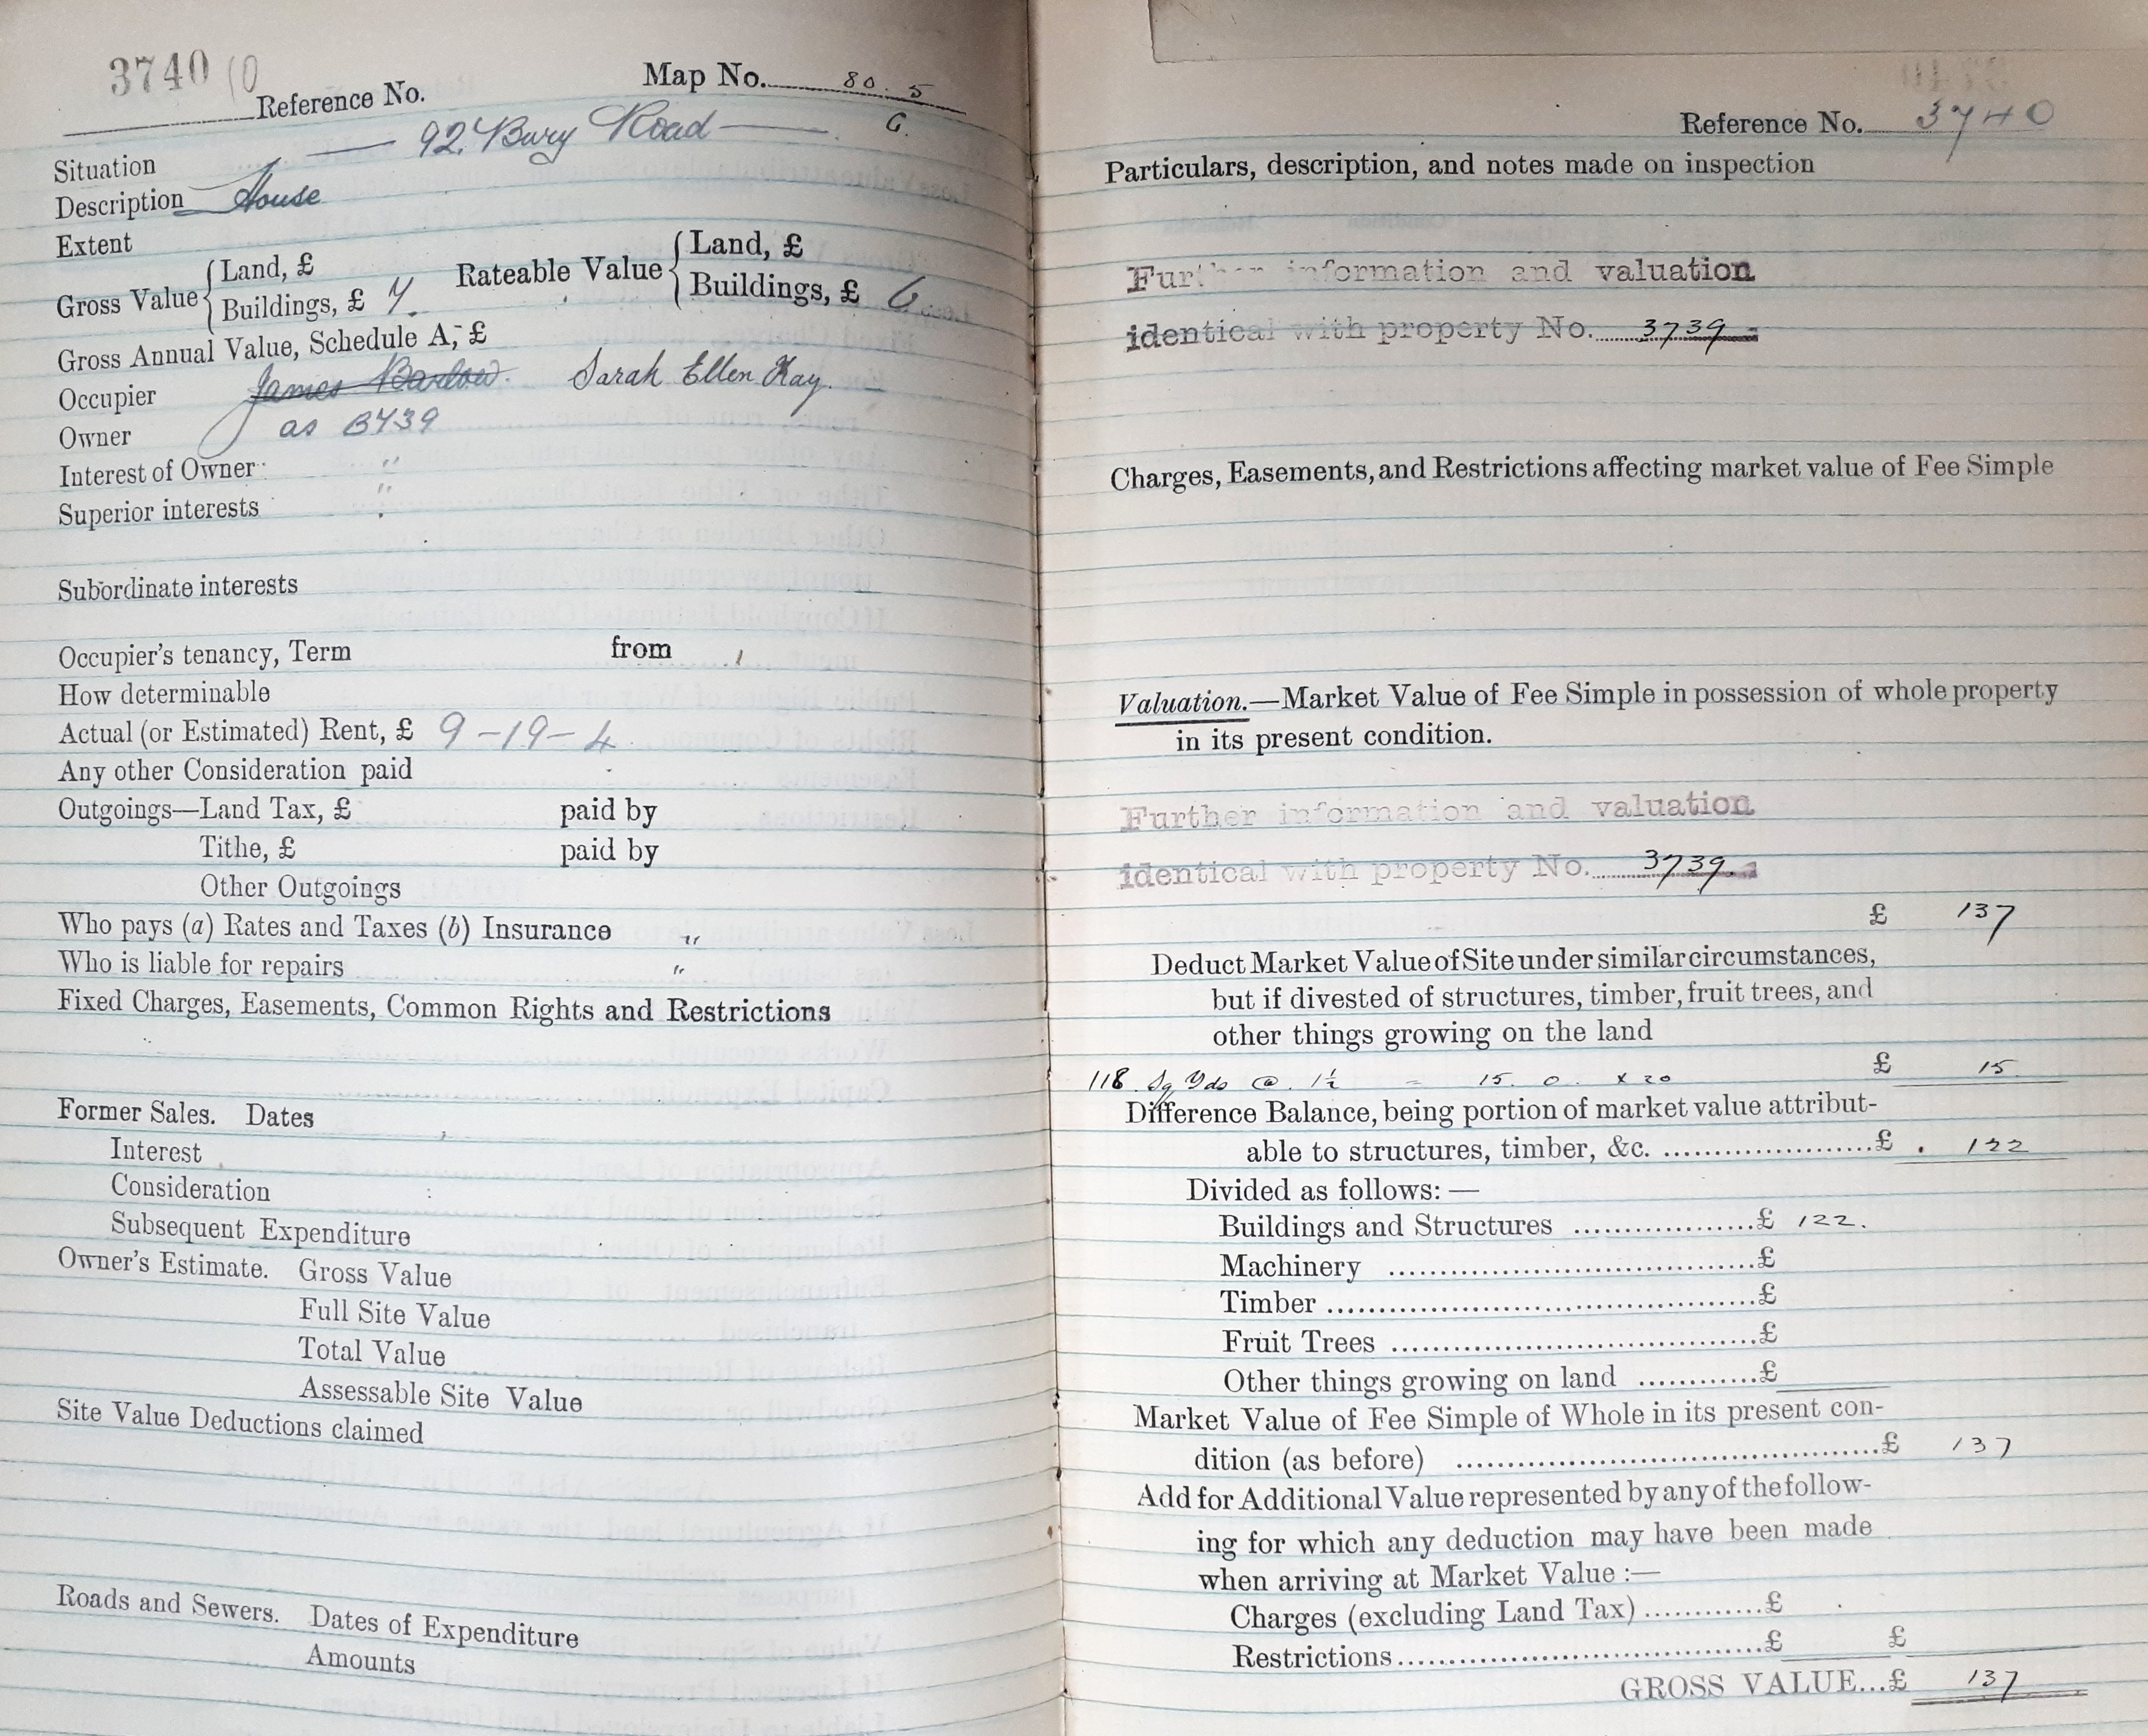 3740 (0
Reference No.
Map No. 80. 5
6.
Situation — 92. Bury Road —
Description House
Extent
Gross Value { Land, £
Buildings, £ 7.
Rateable Value { Land, £
Buildings, £ 6
Gross Annual Value, Schedule A, £
Occupier James Barlow. Sarah Ellen Kay.
Owner as 3739
Interest of Owner "
Superior interests "
Subordinate interests
Occupier's tenancy, Term from
How determinable
Actual (or Estimated) Rent, £ 9-19-4
Any other Consideration paid
Outgoings—Land Tax, £ paid by
Tithe, £ paid by
Other Outgoings
Who pays (a) Rates and Taxes (b) Insurance "
Who is liable for repairs "
Fixed Charges, Easements, Common Rights and Restrictions
Former Sales. Dates
Interest
Consideration
Subsequent Expenditure
Owner's Estimate. Gross Value
Full Site Value
Total Value
Assessable Site Value
Site Value Deductions claimed
Roads and Sewers. Dates of Expenditure
Amounts
Reference No. 3740
Particulars, description, and notes made on inspection
Further information and valuation
identical with property No. 3739
Charges, Easements, and Restrictions affecting market value of Fee Simple
Valuation.—Market Value of Fee Simple in possession of whole property
in its present condition.
Further information and valuation
identical with property No. 3739.
£ 137
Deduct Market Value of Site under similar circumstances,
but if divested of structures, timber, fruit trees, and
other things growing on the land
118 Sq Yds @ 1½ = 15. 0. x 20 £ 15.
Difference Balance, being portion of market value attribut-
able to structures, timber, &c. ........ £ 122
Divided as follows:—
Buildings and Structures ........ £ 122.
Machinery ........ £
Timber ........ £
Fruit Trees ........ £
Other things growing on land ........ £
Market Value of Fee Simple of Whole in its present con-
dition (as before) ........ £ 137
Add for Additional Value represented by any of the follow-
ing for which any deduction may have been made
when arriving at Market Value:—
Charges (excluding Land Tax) ........ £
Restrictions ........ £ £
GROSS VALUE...£ 137